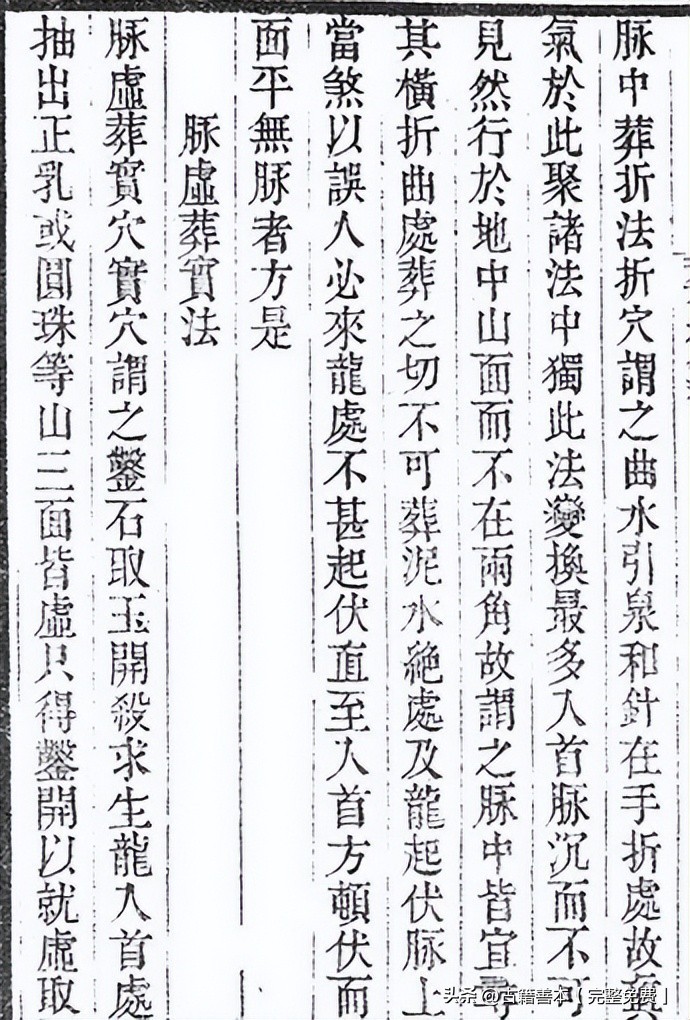 脉中葬折法折穴謂之曲水引泉和針在手折處故真
氣於此聚諸法中獨此法變換最多入首脉沉而不可
見然行於地中山面而不在兩角故謂之脉中皆宜尋
其橫折曲處葬之切不可葬泥水絕處及龍起伏脉上
當煞以誤人必來龍處不甚起伏直至入首方頓伏而
面平無脉者方是
脉虛葬實法
脉虛葬實穴實穴謂之鑿石取玉開殺求生龍入首處
抽出正乳或圓珠等山三面皆虛只得鑿開以就虛取
头条@古籍善本(完整免费)